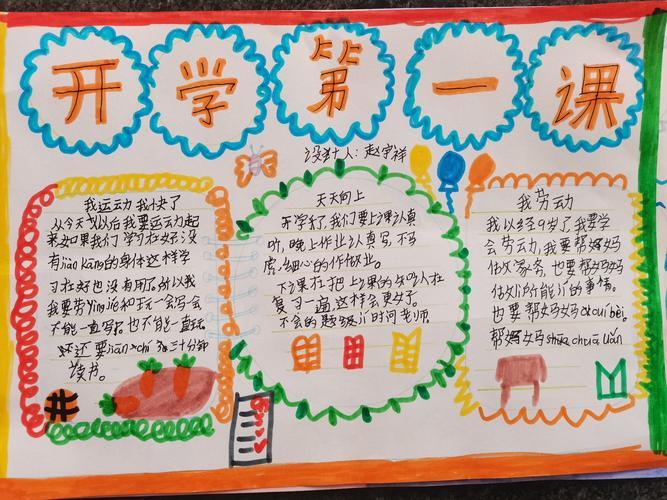 开学第一课
设计人：赵宇祥
我运动 我快了
从今天以后我要运动起
来如果我们学习在好没
有jiàn kāng的身体这样学
习在好也没有用了所以我
我要劳yì jié和
不能一直写也不能一直玩
还要jiān chí 三十分钟
读书。
天天向上
开学了，我们要上课认真
听，晚上作业认真写，不马
虎，细心的作做业。
下课在把上课的知识在
复习一遍，这样会更好。
不会的题 时间老师
我劳动
我以经9岁了，我要学
会劳动，我要帮妈妈
做家务，也要帮妈妈
做 所能 的事情。
也要帮妈妈
帮妈妈shuā chuā uǎn